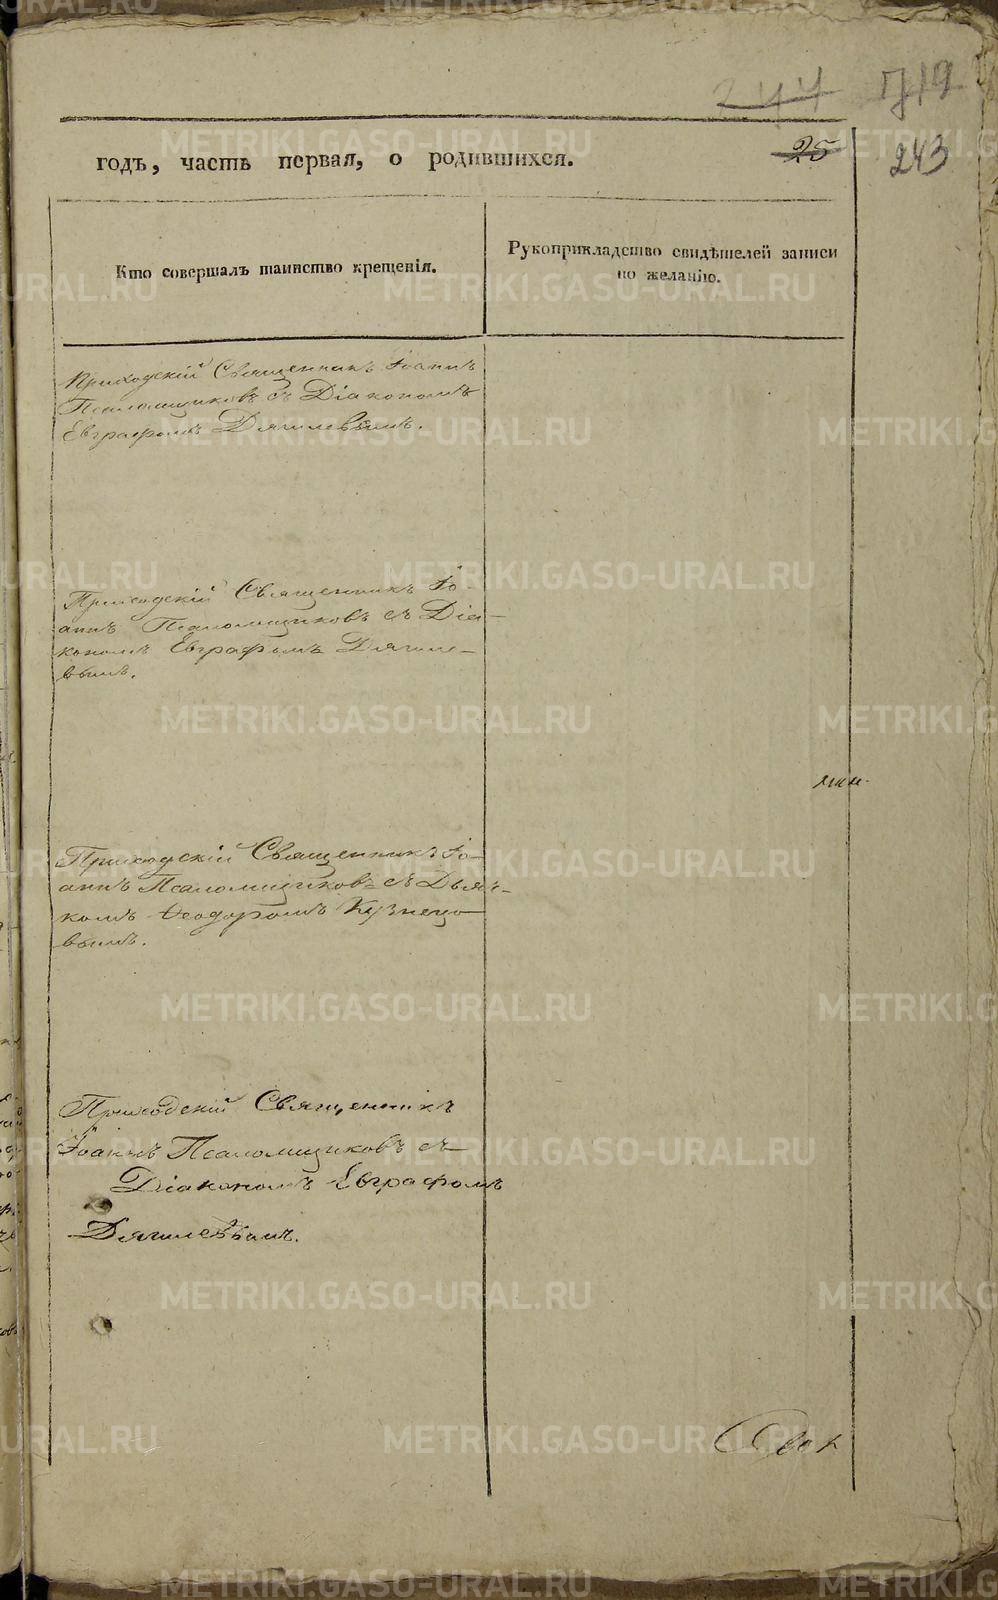 244 719
25
243
годъ, часть первая, о родившихся.
Кто совершалъ таинство крещенія.
Рукоприкладство свидѣтелей записи
по желанію.
Приходскій Священникъ Іоаннъ
Псаломщиковъ съ Діакономъ
Евграфомъ Дягилевымъ.
Приходскій Священникъ Іо-
аннъ Псаломщиковъ съ Діа-
кономъ Евграфомъ Дягиле-
вымъ.
Приходскій Священникъ Іо-
аннъ Псаломщиковъ съ Дьяч-
комъ Ѳеодоромъ Кузнецо-
вымъ.
Приходскій Священникъ
Іоаннъ Псаломщиковъ съ
Діакономъ Евграфомъ
Дягилевымъ.
METRIKI.GASO-URAL.RU